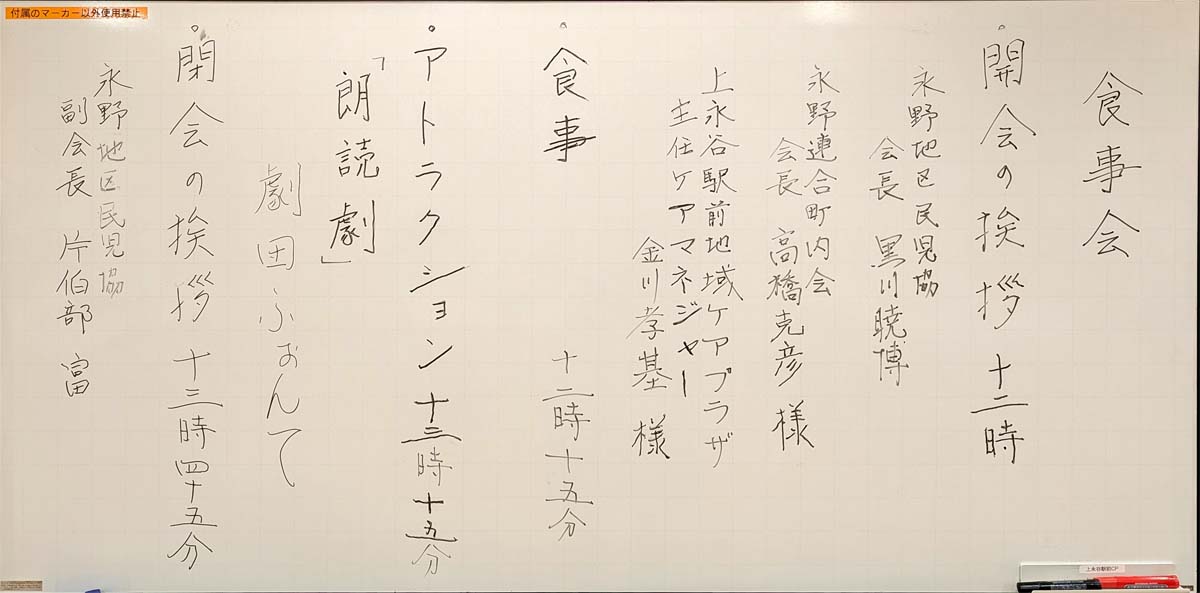 付属のマーカー以外使用禁止
食事会
。開会の挨拶 十二時
永野地区民児協
会長 黒川暁博
永野連合町内会
会長 高橋克彦 様
上永谷駅前地域ケアプラザ
主任ケアマネジャー
金川孝基 様
。食事 十二時十五分
。アトラクション 十三時十五分
「朗読劇」
劇団ふぉんて
。閉会の挨拶 十三時四十五分
永野地区民児協
副会長 片伯部 富
上永谷駅前CP